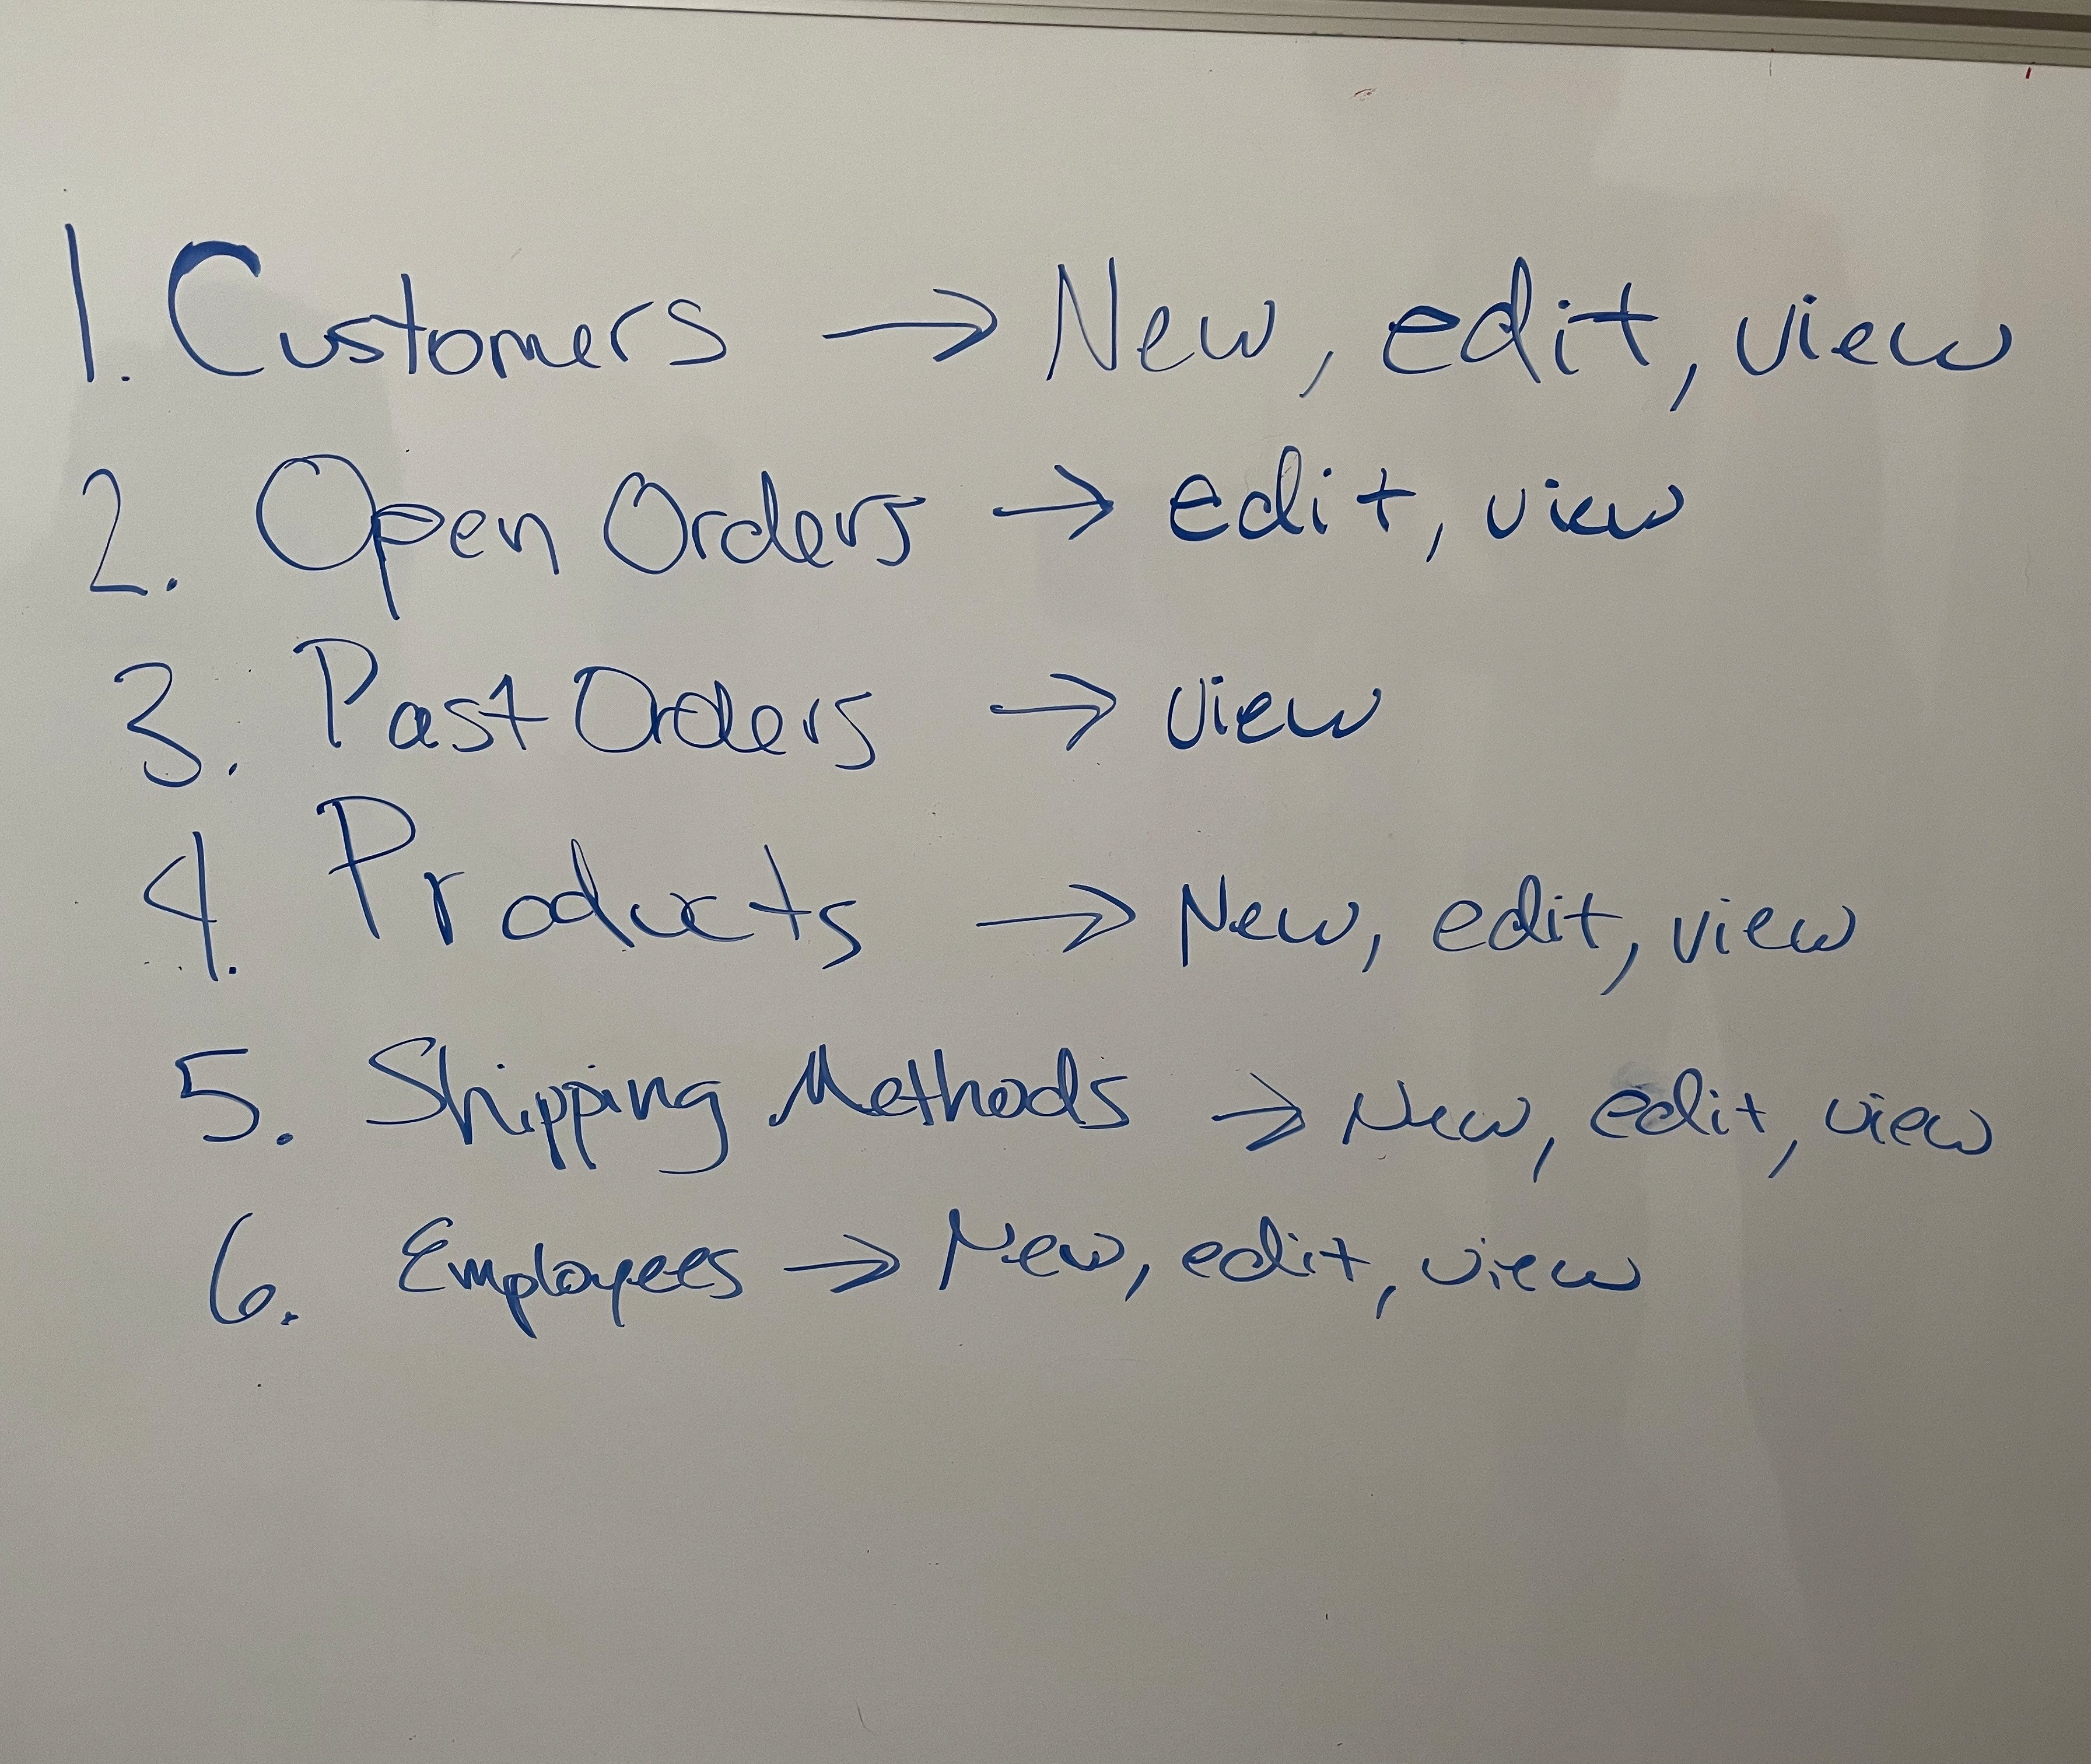 1. Customers → New, edit, view
2. Open Orders → edit, view
3. Past Orders → view
4. Products → New, edit, view
5. Shipping Methods → New, edit, view
6. Employees → New, edit, view